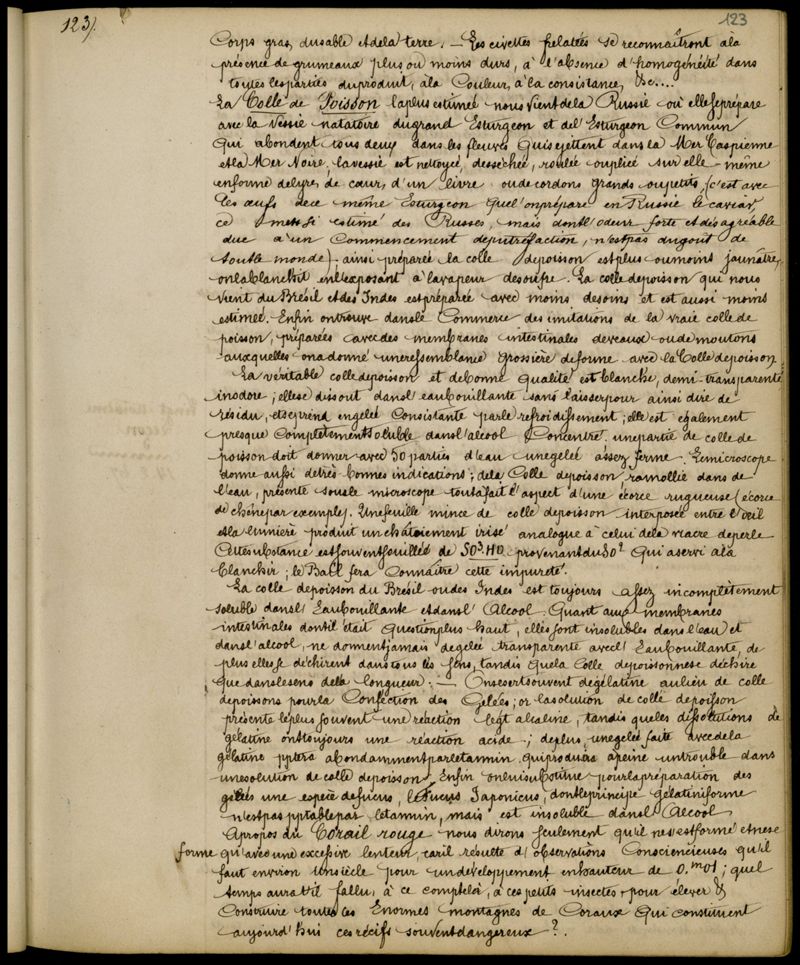 123/.
123
Corps gras, du sable et de la terre. — Les civettes frelatées se reconnaîtront à la
présence de grumeaux plus ou moins durs, à l'absence d'homogénéité dans
toutes les parties du produit, à la Couleur, à la consistance, &c....
La Colle de Poisson la plus estimée nous vient de la Russie où elle se prépare
avec la Vessie natatoire du grand Esturgeon et de l'Esturgeon Commun
qui abondent tous deux dans les fleuves qui se jettent dans la Mer Caspienne
et la Mer Noire. la vessie est nettoyée, desséchée, roulée ou pliée sur elle-même
en forme de lyre, de cœur, d'un livre ou de cordons grands ou petits, (c'est avec
les œufs de ce même Esturgeon que l'on prépare en Russie le caviar,
ce mets si estimé des Russes, mais dont l'odeur forte et désagréable
due à un Commencement de putréfaction, n'est pas du goût de
tout le monde). ainsi préparée la colle de poisson est plus ou moins jaunâtre,
on la blanchit en l'exposant à la vapeur de soufre. La colle de poisson qui nous
vient du Brésil et des Indes est préparée avec moins de soins et est aussi moins
estimée. Enfin on trouve dans le Commerce des imitations de la vraie colle de
poisson, préparées avec des membranes intestinales de veaux ou de moutons
auxquelles on a donné une ressemblance grossière de forme avec la Colle de poisson.
La véritable colle de poisson et de bonne qualité est blanche, demi-transparente
inodore ; elle se dissout dans l'eau bouillante sans laisser pour ainsi dire de
résidu, et se prend en gelée Consistante par le refroidissement ; elle est également
presque Complètement soluble dans l'alcool Concentré. une partie de colle de
poisson doit donner avec 50 parties d'eau une gelée assez ferme. Le microscope
donne aussi de très bonnes indications ; de la Colle de poisson ramollie dans de
l'eau, présente sous le microscope tout à fait l'aspect d'une écorce rugueuse (écorce
de chêne par exemple). Une feuille mince de colle de poisson interposée entre l'œil
et la lumière produit un chatoiement irisé analogue à celui de la nacre de perle
Cette substance est souvent souillée de SO³.HO provenant du SO² qui a servi à la
blanchir ; le BaCl fera Connaître cette impureté.
La colle de poisson du Brésil ou des Indes est toujours assez incomplètement
soluble dans l'Eau bouillante et dans l'Alcool. Quant aux membranes
intestinales dont il était question plus haut, elles sont insolubles dans l'eau et
dans l'alcool, ne donnent jamais de gelée transparente avec l'Eau bouillante, de
plus elles se déchirent dans tous les sens, tandis que la Colle de poisson ne se déchire
que dans le sens de la longueur. — On se sert souvent de gélatine au lieu de colle
de poissons pour la Confection des Gelées ; or la solution de colle de poisson
présente le plus souvent une réaction légt alcaline, tandis que les dissolutions de
gélatine ont toujours une réaction acide ; de plus, une gelée faite avec de la
gélatine pptera abondamment par le tannin, qui produira à peine un trouble dans
une solution de colle de poisson. Enfin on lui substitue pour la préparation des
gelées une espèce de fucus, le Fucus Japonicus, dont le principe gélatiniforme
n'est pas pptable par le tannin, mais est insoluble dans l'Alcool.
A propos du Corail rouge nous dirons seulement qu'il ne s'est formé et ne se
forme qu'avec une excessive lenteur, car il résulte d'observations Consciencieuses qu'il
faut environ Un siècle pour un développement en hauteur de 0.ᵐ01 ; quel
temps aura-t-il fallu, à ce compte là, à ces petits insectes pour élever &
Construire toutes les Enormes montagnes de Coraux qui constituent
aujourd'hui ces récifs souvent dangereux ?.